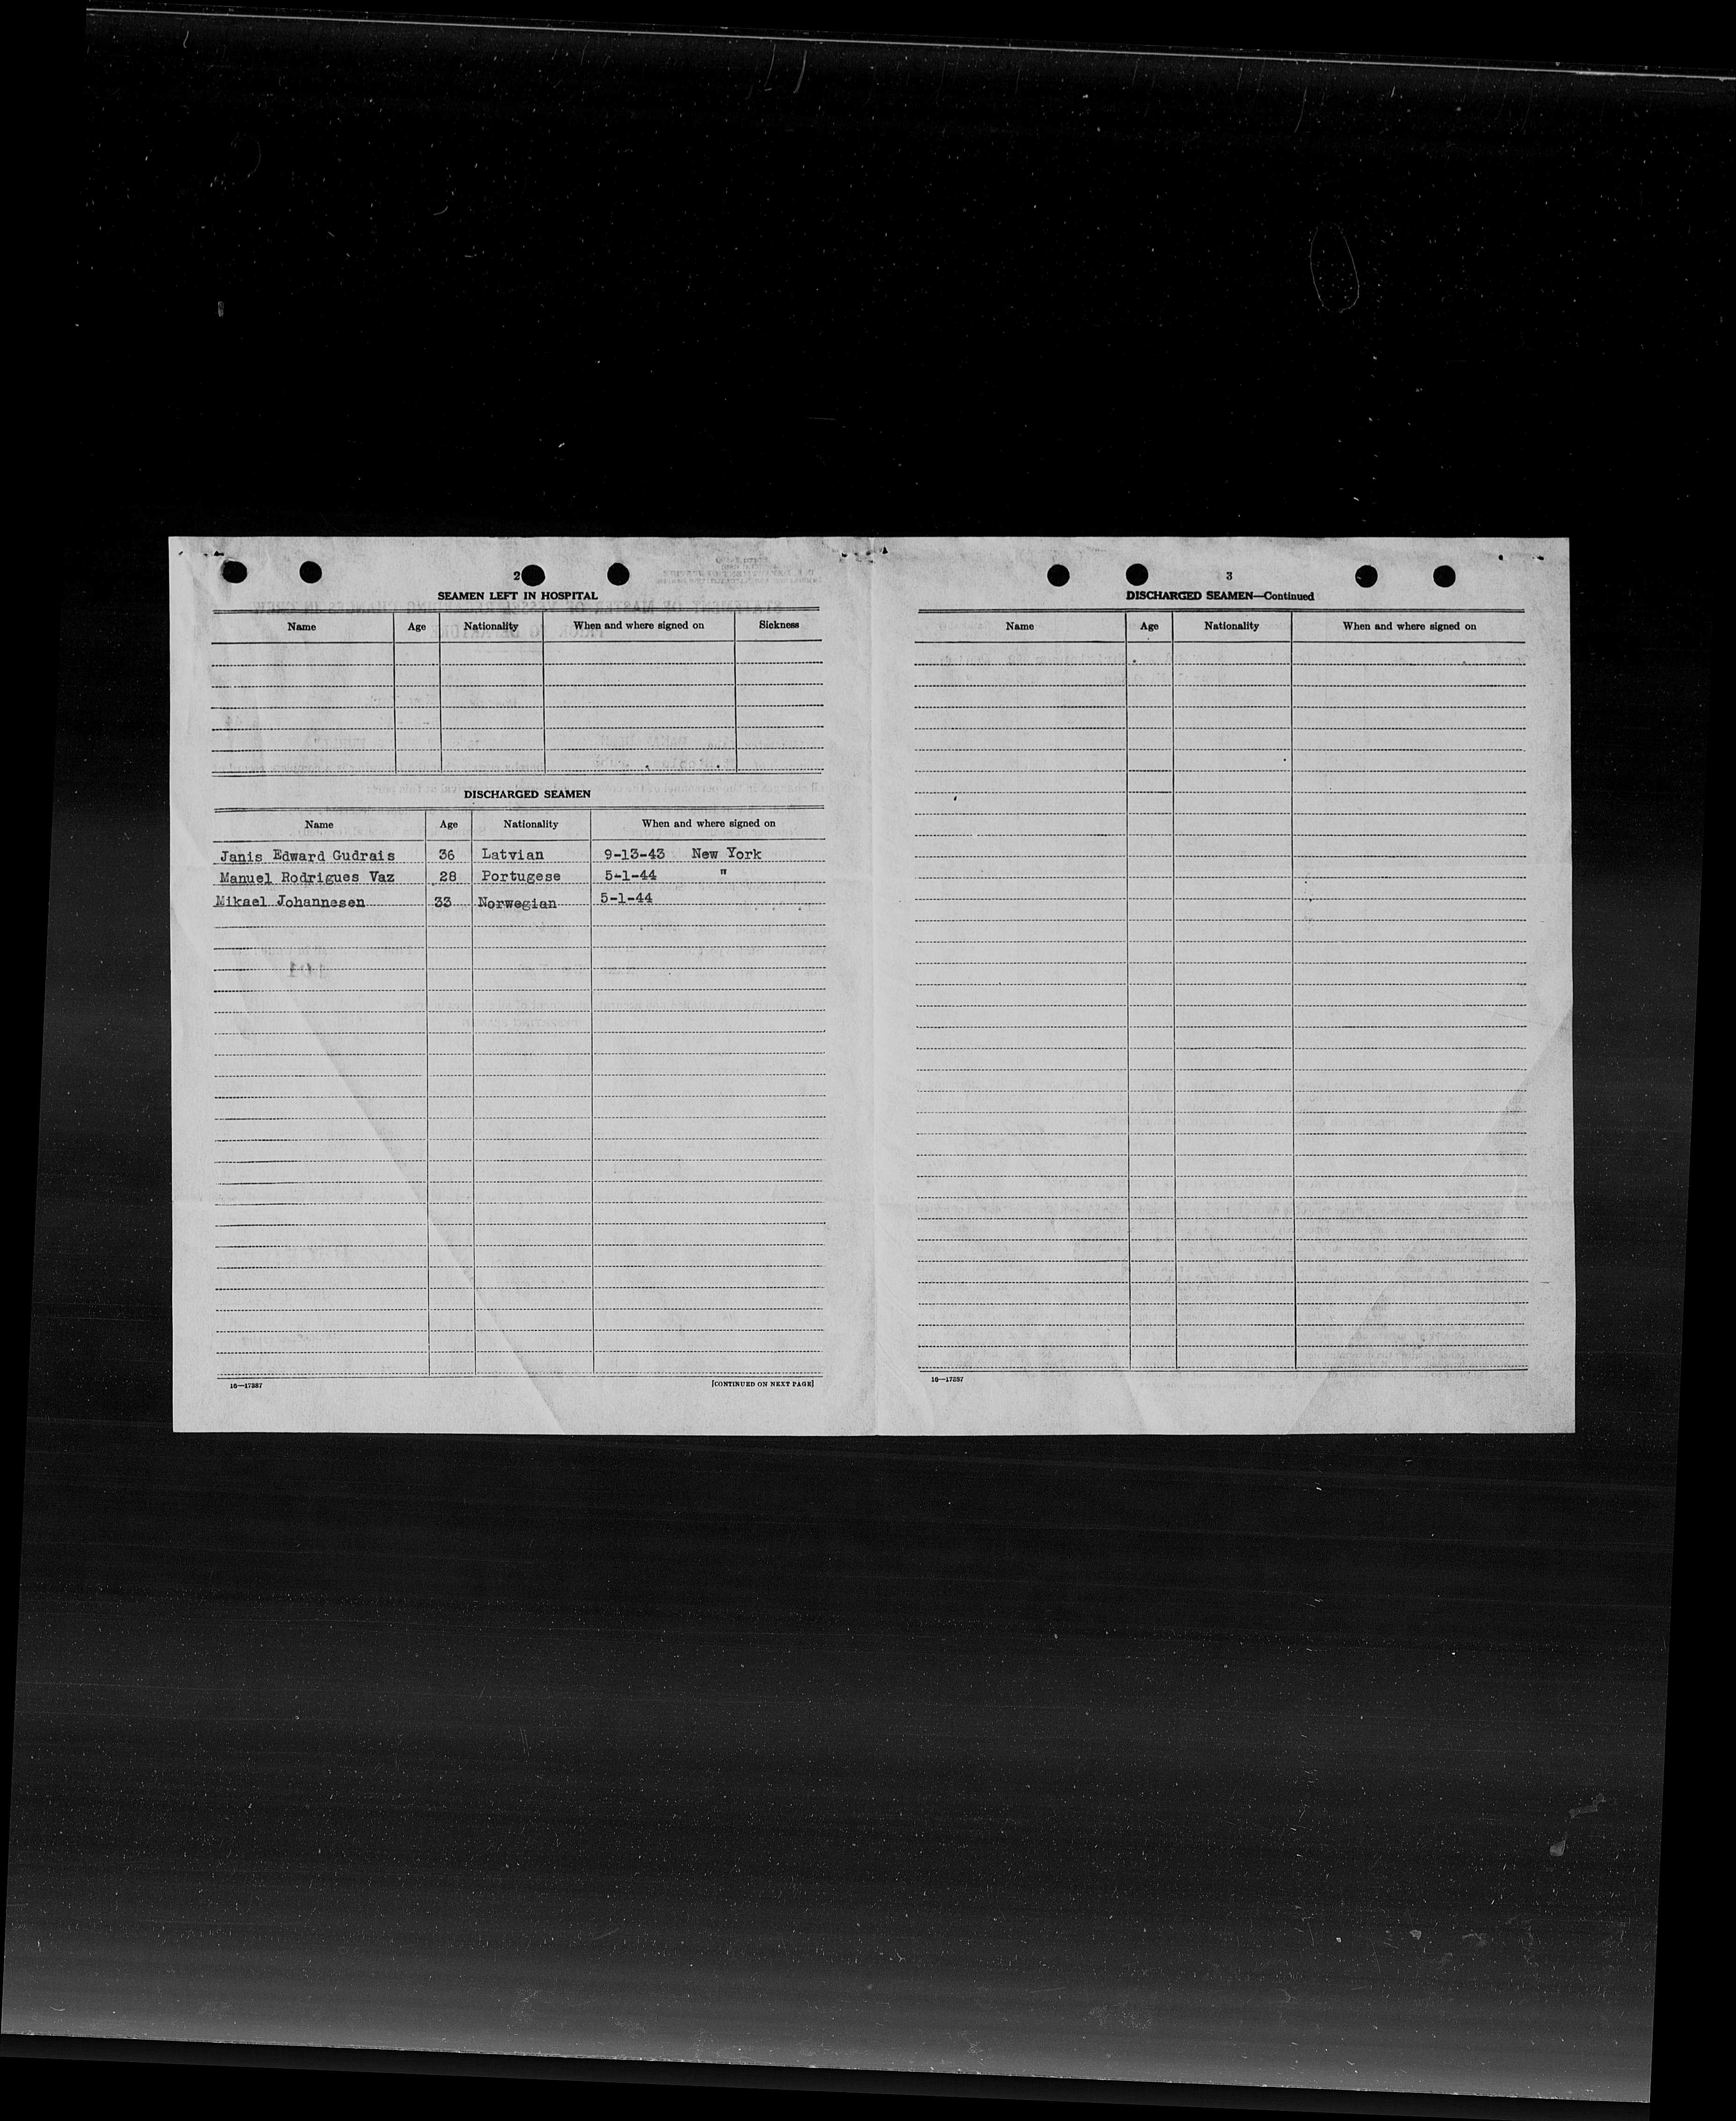 2
SEAMEN LEFT IN HOSPITAL
Name Age Nationality When and where signed on Sickness
DISCHARGED SEAMEN
Name Age Nationality When and where signed on
Janis Edward Gudrais 36 Latvian 9-13-43 New York
Manuel Rodrigues Vaz 28 Portugese 5-1-44 "
Mikael Johannesen 33 Norwegian 5-1-44
16—17287
[CONTINUED ON NEXT PAGE]
3
DISCHARGED SEAMEN—Continued
Name Age Nationality When and where signed on
16—17287